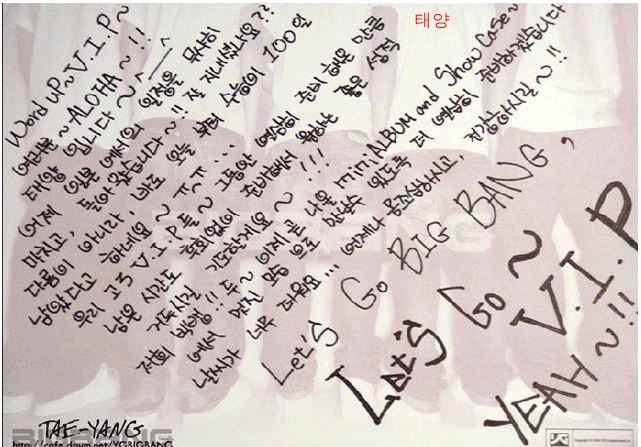 태양
Word up ~ V.I.P ~
여러분 ~ ALOHA ~ !!
태양 입니다 ~ ^^
어제 일본에서의 일정을 무사히
마치고, 돌아 왔습니다 ~ !! 잘 지내셨나요??
다름이 아니라, 바로 오늘 부터 수능이 100일
남았다고 하네요 ~ ㅠ^ㅠ ...
우리 고3 V.I.P들 ~ 그동안 열심히 준비 해온 만큼
남은 시간도 후회없이 준비해서 원하는 좋은 성적
거두시길 기도할게요 ~ !!!
저희 빅뱅!! 두 ~ 이제 곧 나올 mini ALBUM and Show Case ~
에서 멋진 모습으로 만날수 있도록 더 열심히 준비하겠습니다
날씨가 너무 더워요... 언제나 몸조심하시고, 건강하시길 ~ !!
Let's Go BIG BANG,
Let's Go ~ V.I.P
YEAH ~ !!
TAE-YANG
http://cafe.daum.net/YGBIGBANG